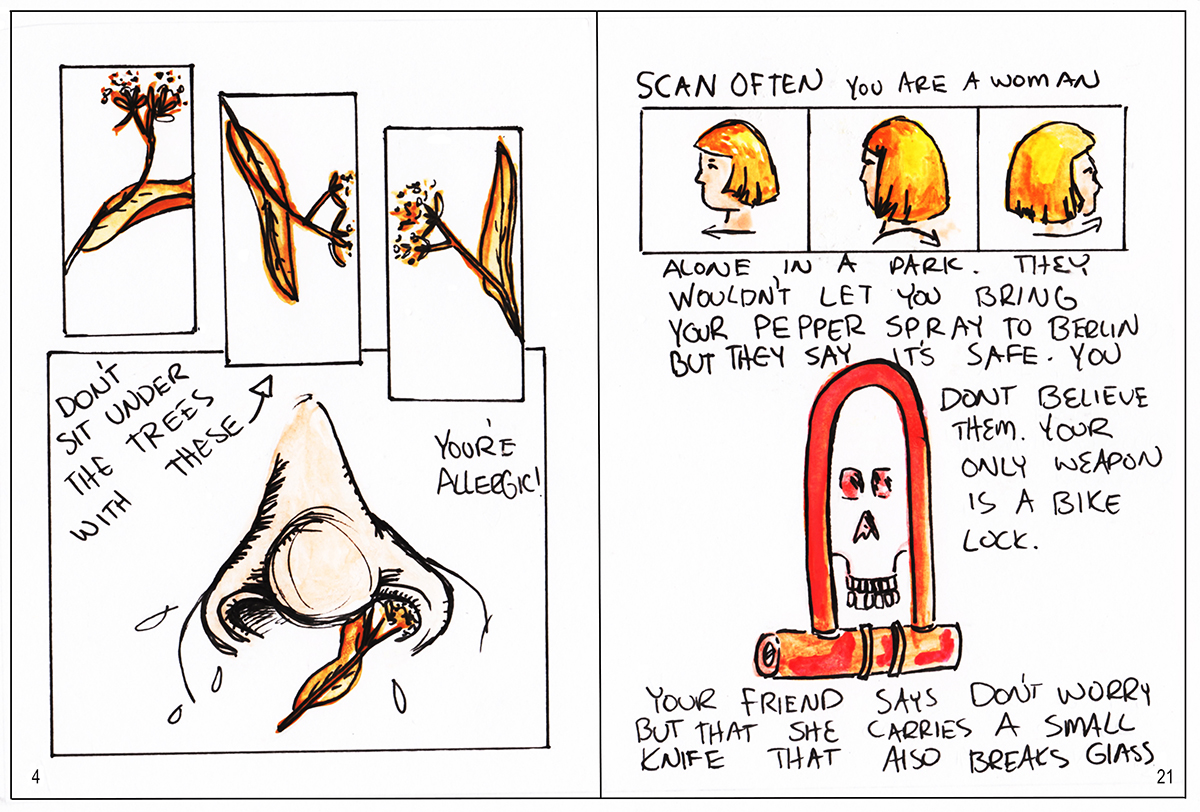 DON'T
SIT UNDER
THE TREES
WITH THESE
YOU'RE
ALLERGIC!
4
SCAN OFTEN YOU ARE A WOMAN
ALONE IN A PARK. THEY
WOULDN'T LET YOU BRING
YOUR PEPPER SPRAY TO BERLIN
BUT THEY SAY IT'S SAFE. YOU
DONT BELIEVE
THEM. YOUR
ONLY WEAPON
IS A BIKE
LOCK.
YOUR FRIEND SAYS DON'T WORRY
BUT THAT SHE CARRIES A SMALL
KNIFE THAT ALSO BREAKS GLASS
21